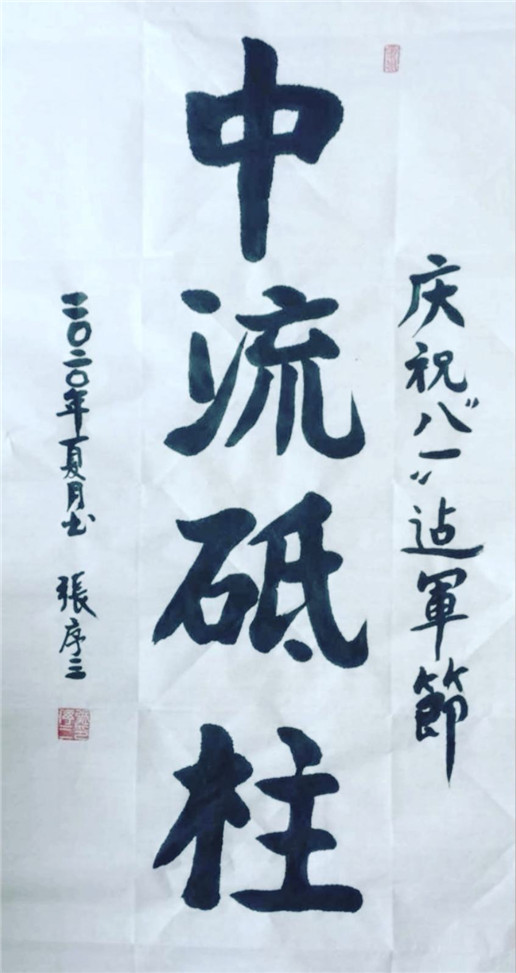 庆祝“八一”建軍節
中流砥柱
二〇二〇年夏月书 張序三